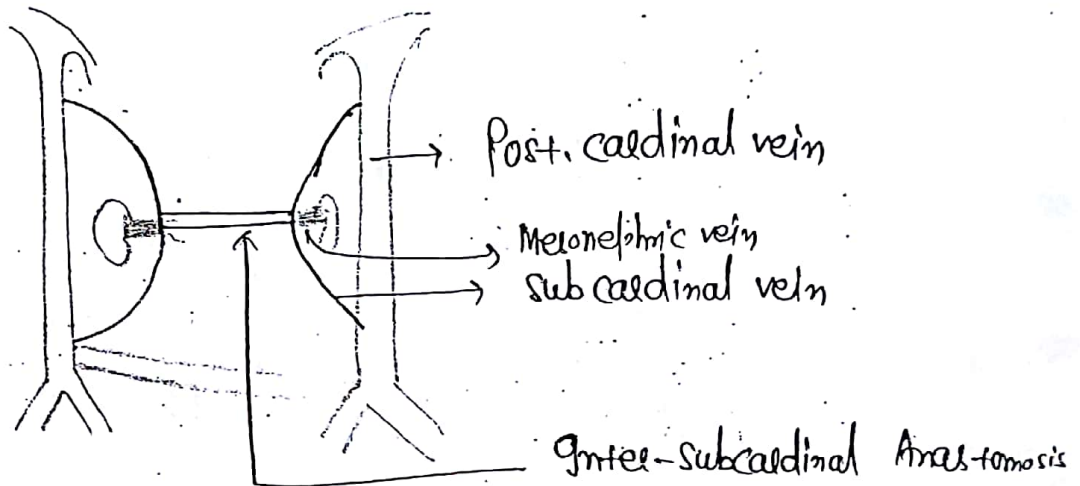 Post. cardinal vein
Mesonephric vein
Subcardinal vein
Inter-Subcardinal Anastomosis